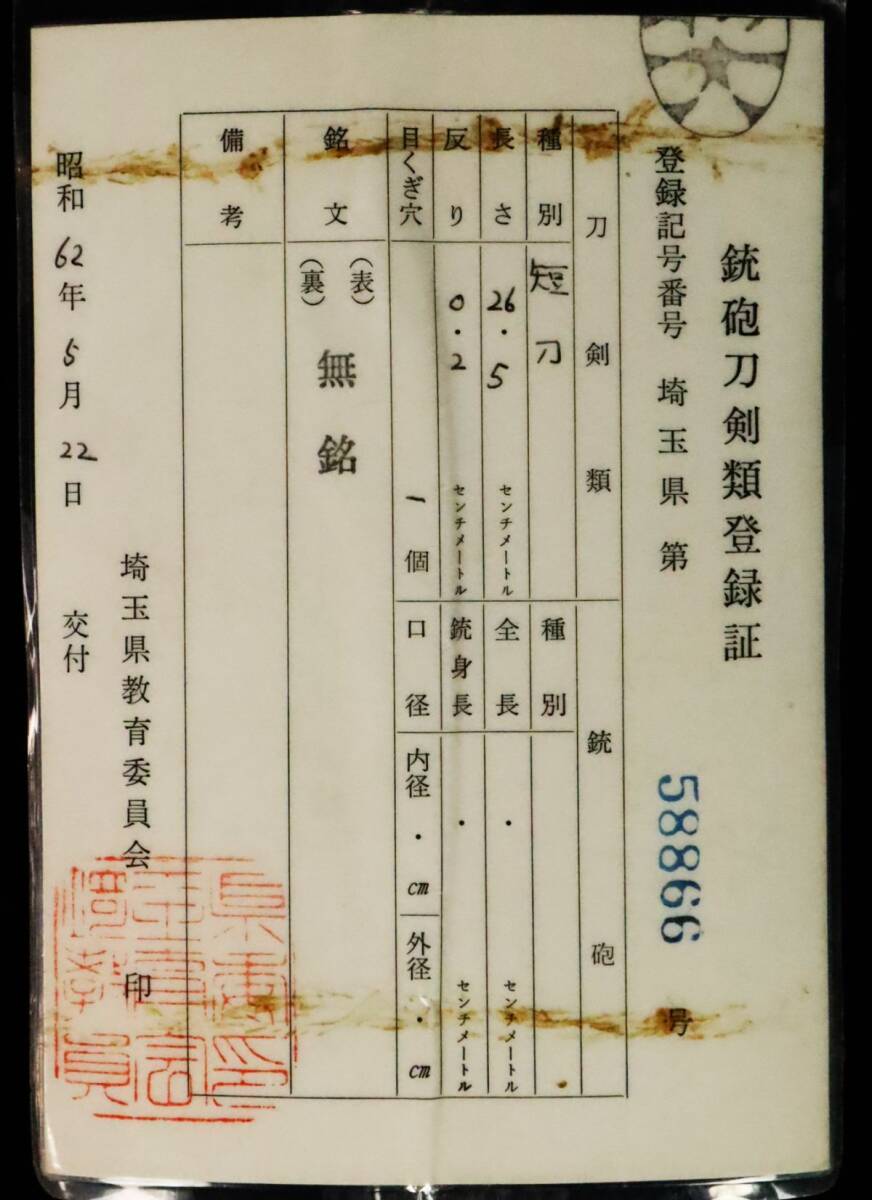 銃砲刀剣類登録証
登録記号番号 埼玉県 第 58866 号
刀剣類
種別 短刀
長さ 26.5 センチメートル
反り 0.2 センチメートル
目くぎ穴 一個
銘文 (表) (裏) 無銘
備考
銃砲
種別
全長 ・ センチメートル
銃身長 ・ センチメートル
口径 内径 ・ cm 外径 ・ cm
埼玉県教育委員会 印
昭和62年5月22日 交付